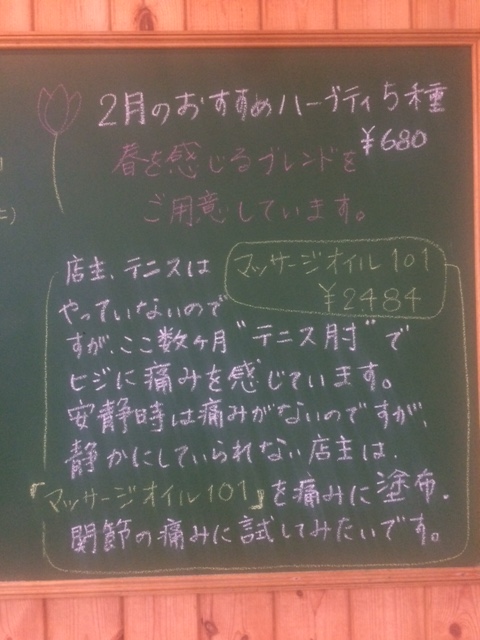 2月のおすすめハーブティ5種
¥680
春を感じるブレンドを
ご用意しています。
マッサージオイル101
¥2484
店主、テニスは
やっていないので
すが、ここ数ヶ月"テニス肘"で
ヒジに痛みを感じています。
安静時は痛みがないのですが、
静かにしていられない店主は、
「マッサージオイル101」を痛みに塗布.
関節の痛みに試してみたいです。